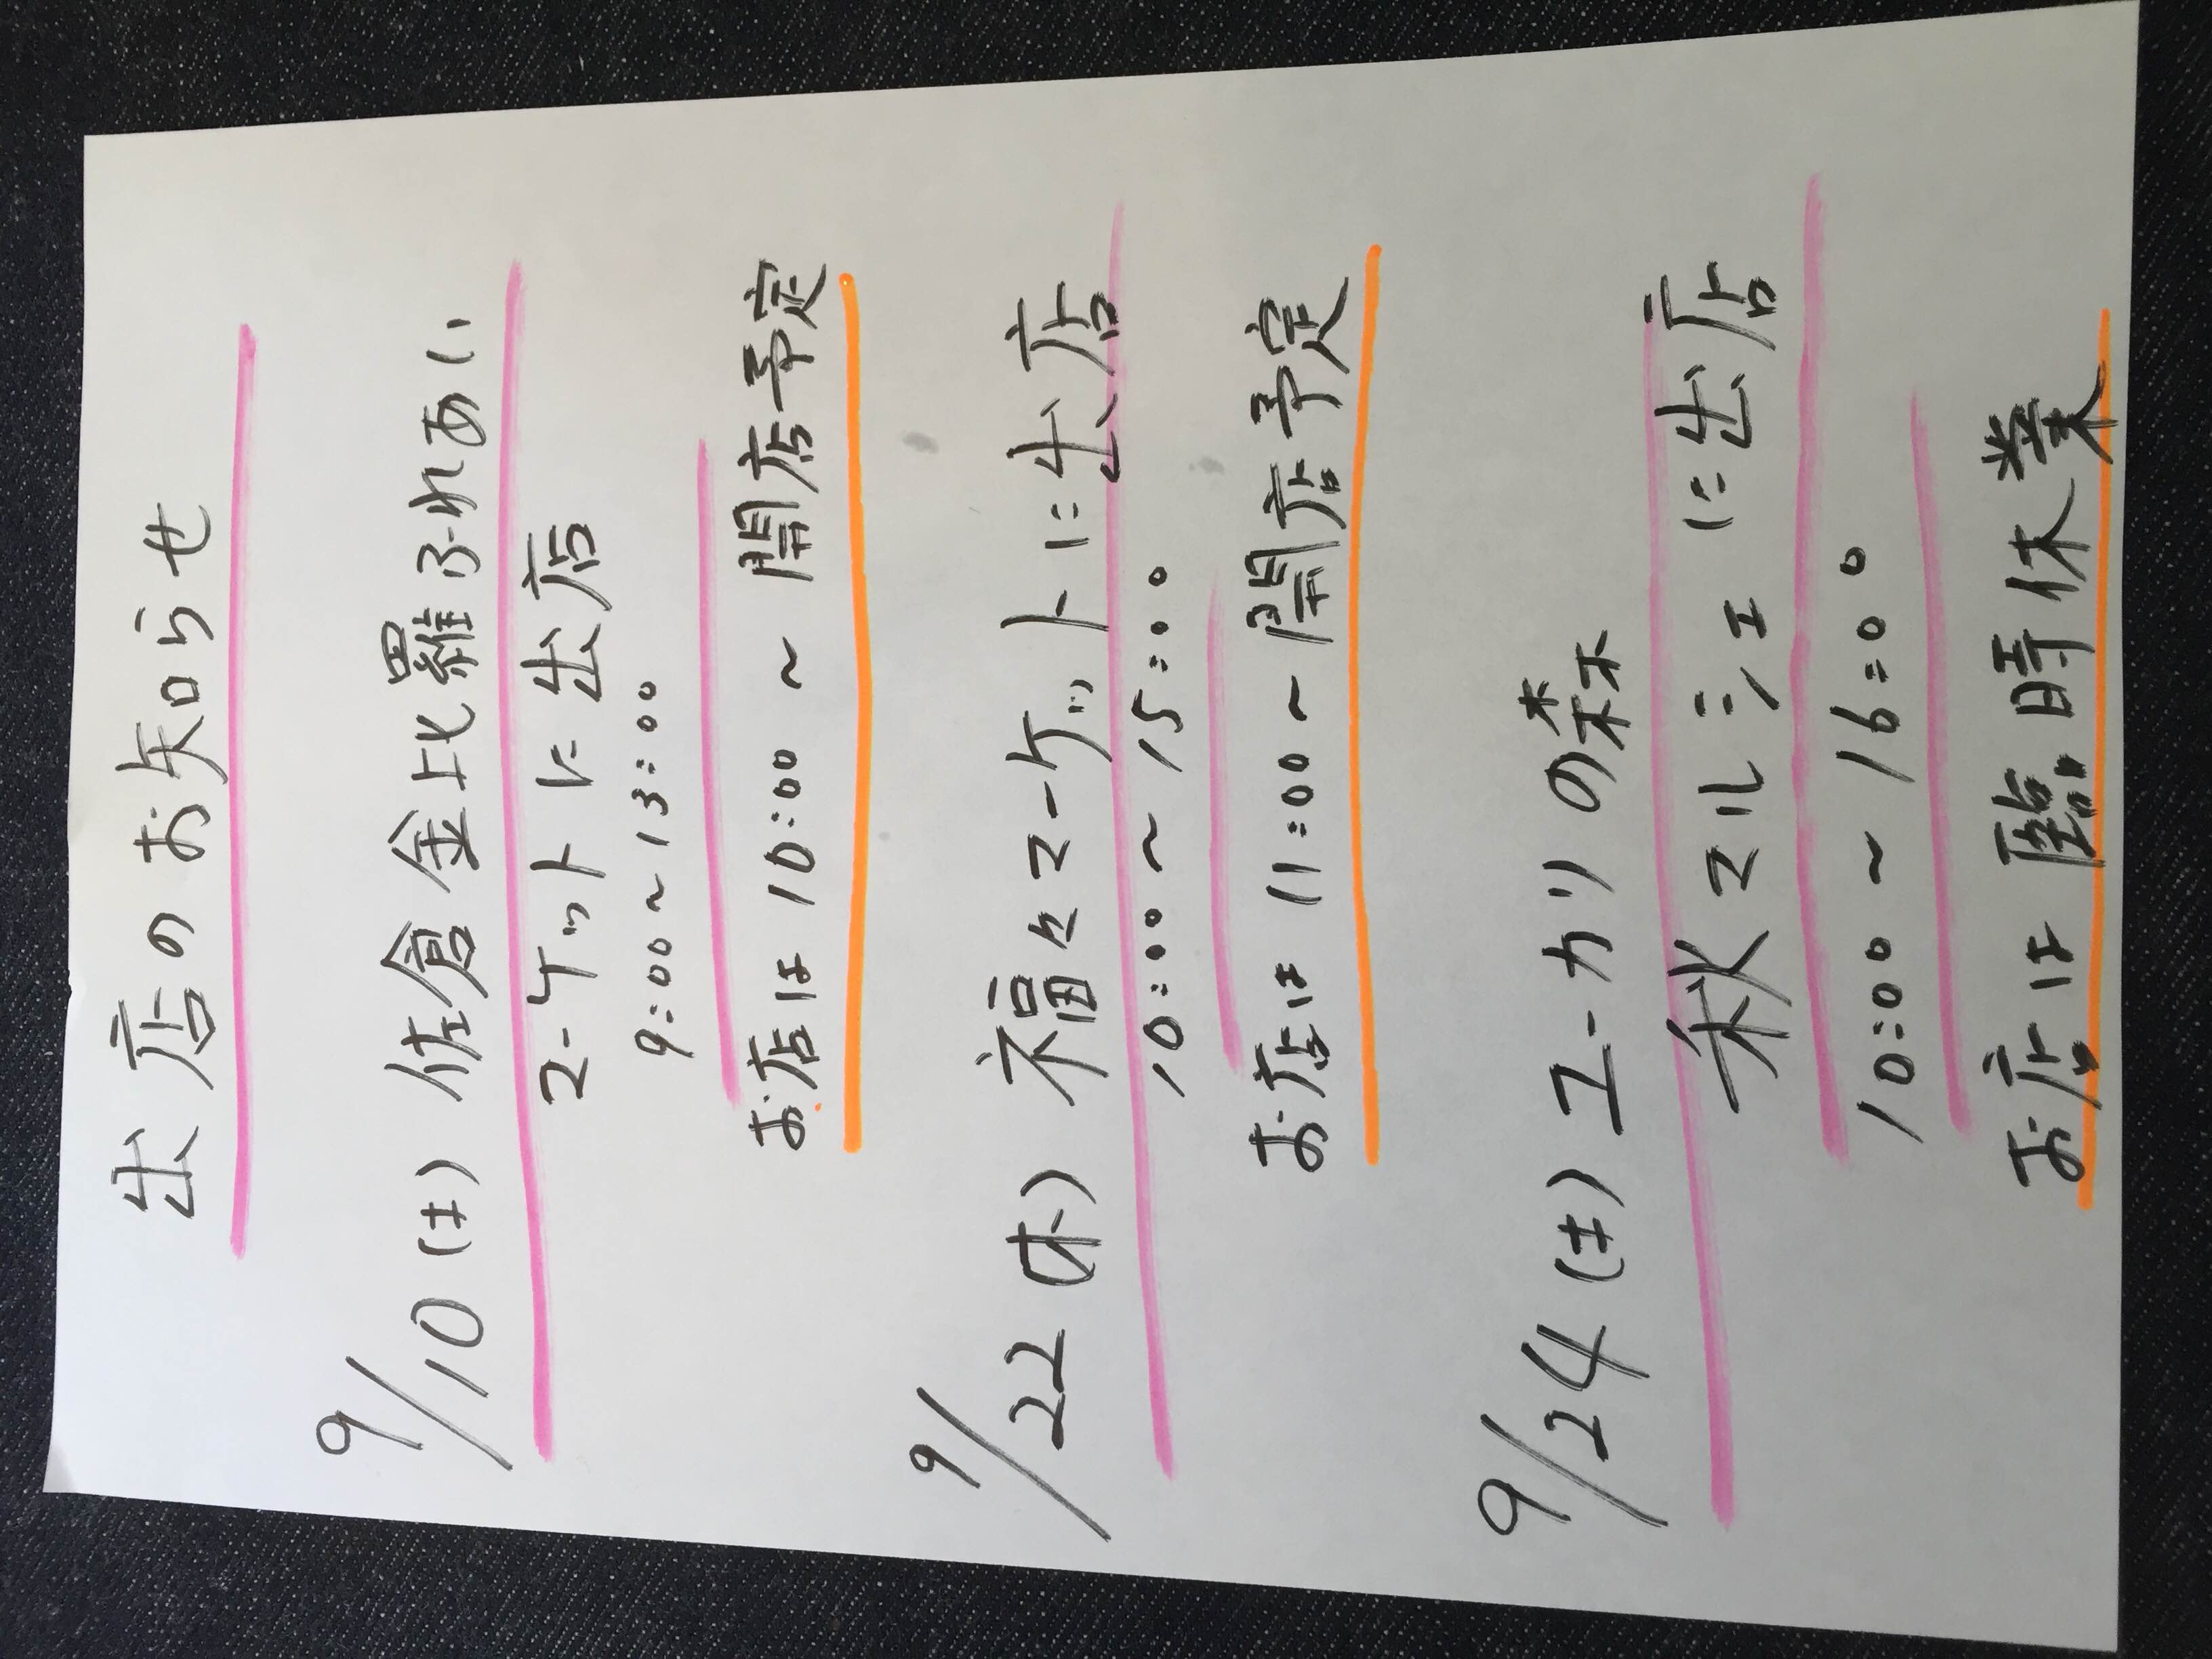 出店のお知らせ
9/10(土) 佐倉金比羅ふれあい
マーケットに出店
9:00~13:00
お店は10:00~開店予定
9/22(木) 福々マーケットに出店
10:00~15:00
お店は11:00~開店予定
9/24(土) ユーカリの森
秋マルシェに出店
10:00~16:00
お店は臨時休業